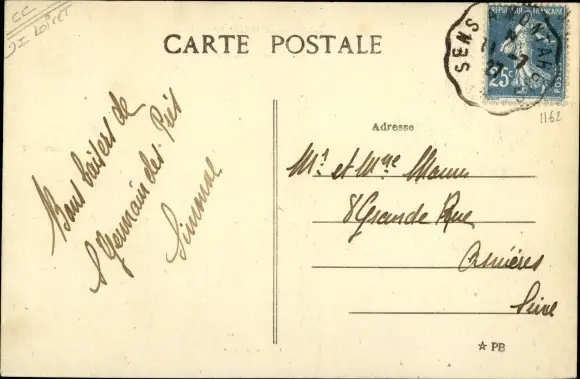 CC
DI Loiret
CARTE POSTALE
SENS A MONTARGIS
11-7
27
REPUBLIQUE FRANÇAISE
25c
POSTES
1162
Adresse
Bons baisers de
St Germain des Prés
Simonne
Mr et Mme
8 Grande Rue
Asnières
Seine
☆ PB